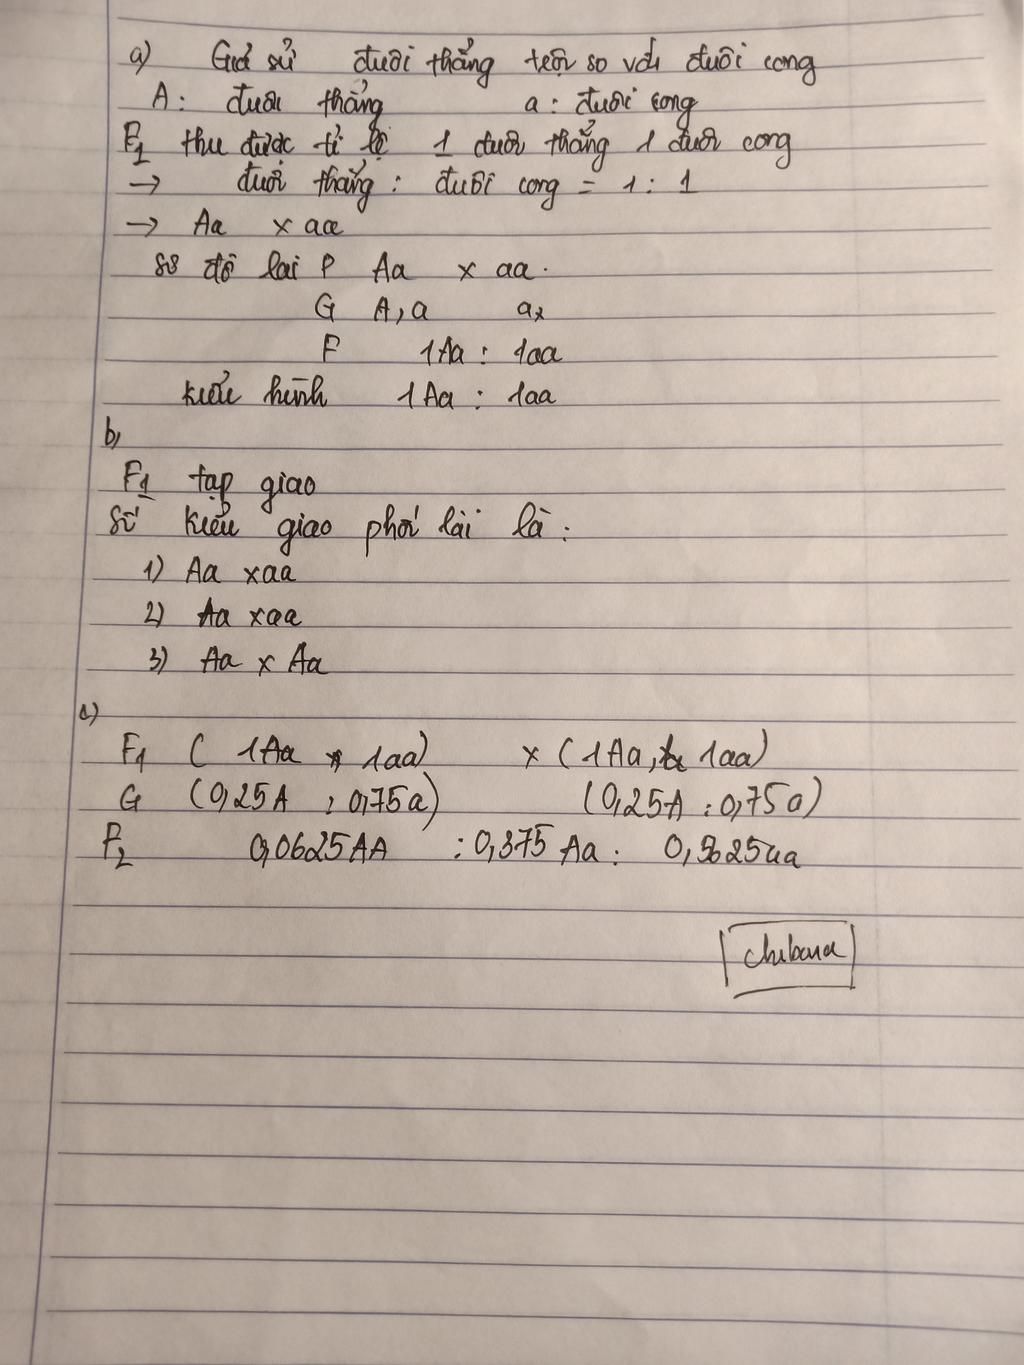 a) Giả sử đuôi thẳng trội so với đuôi cong
A: đuôi thẳng a: đuôi cong
F1 thu được tỉ lệ 1 đuôi thẳng 1 đuôi cong
→ đuôi thẳng: đuôi cong = 1:1
→ Aa x aa
sơ đồ lai P Aa x aa.
G A,a a
F 1Aa : 1aa
kiểu hình 1Aa : 1aa
b,
F1 tạp giao
Số kiểu giao phối lài là:
1) Aa xaa
2) Aa xaa
3) Aa x Aa
c)
F1 ( 1Aa 1aa) x (1Aa, 1aa)
G (0,25A : 0,75a) (0,25A : 0,75a)
F2 0,0625AA : 0,375 Aa : 0,5625aa